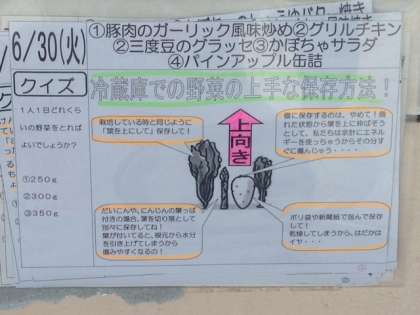 6/30(火)
①豚肉のガーリック風味炒め②グリルチキン
②三度豆のグラッセ③かぼちゃサラダ
④パインアップル缶詰
クイズ
1人1日どれくら
いの野菜をとれば
よいでしょうか?
①250g
②300g
③350g
冷蔵庫での野菜の上手な保存方法!
栽培している時と同じように
「葉を上にして」保存して!
上向き
横に保存するのは、やめて!倒
れた状態から葉を上に伸ばそう
として、私たちは余計にエネル
ギーを使っちゃうからその分す
ぐに傷んじゃう・・・・
だいこんや、にんじんの葉っぱ
付きの場合、葉を切り落として
別々に保存してね!
葉が付いてると、根元から水分
を引き上げてしまうから
傷みやすくなるの!
ポリ袋や新聞紙で包んで保存し
て!
乾燥してしまうから、はだかは
イヤ・・・